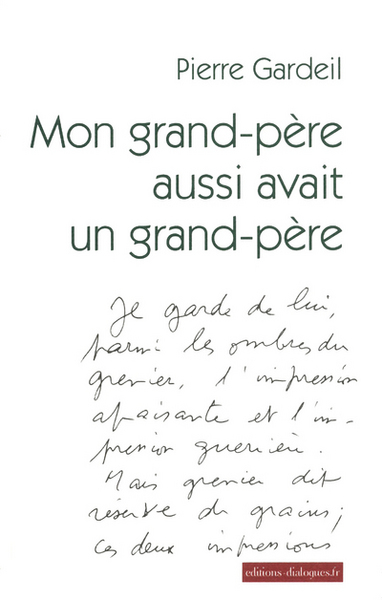 Pierre Gardeil
Mon grand-père
aussi avait
un grand-père
Je garde de lui,
parmi les ombres du
grenier, l'impression
apaisante et l'im-
pression guerrière.
Mais grenier dit
réserve de grains ;
ces deux impressions
editions-dialogues.fr